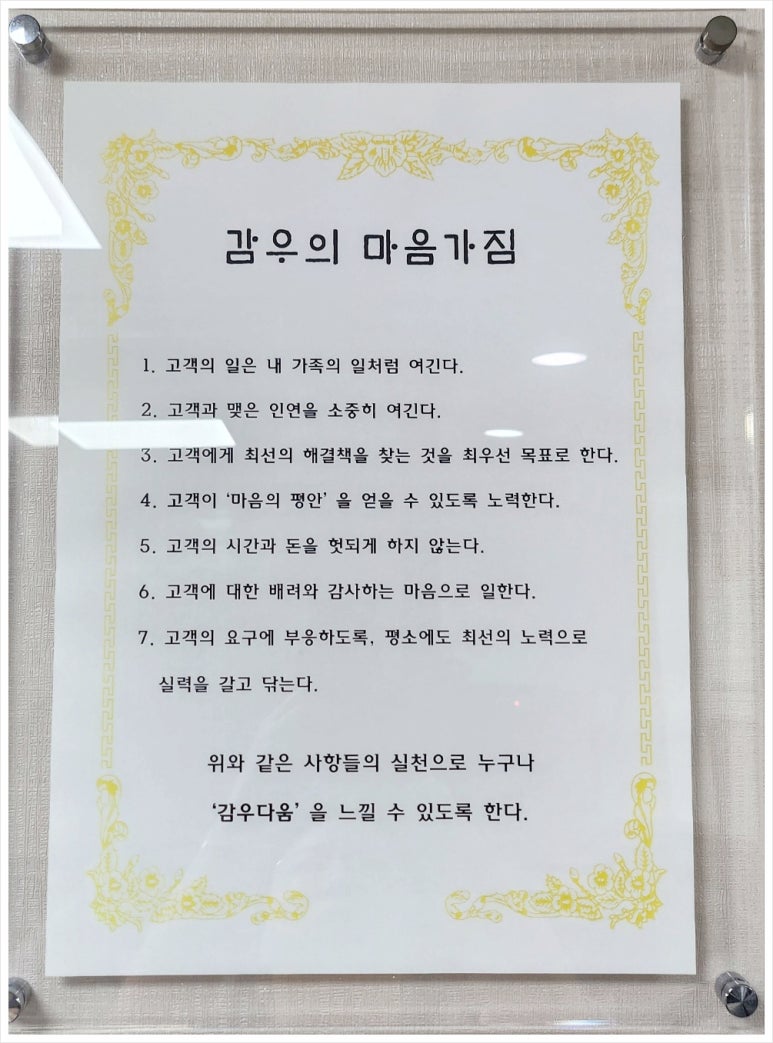 감우의 마음가짐
1. 고객의 일은 내 가족의 일처럼 여긴다.
2. 고객과 맺은 인연을 소중히 여긴다.
3. 고객에게 최선의 해결책을 찾는 것을 최우선 목표로 한다.
4. 고객이 ‘마음의 평안’ 을 얻을 수 있도록 노력한다.
5. 고객의 시간과 돈을 헛되게 하지 않는다.
6. 고객에 대한 배려와 감사하는 마음으로 일한다.
7. 고객의 요구에 부응하도록, 평소에도 최선의 노력으로
실력을 갈고 닦는다.
위와 같은 사항들의 실천으로 누구나
‘감우다움’ 을 느낄 수 있도록 한다.